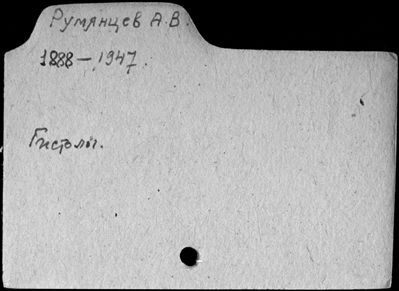 Румянцев А.В.
1888 – 1947.
Гистолог.